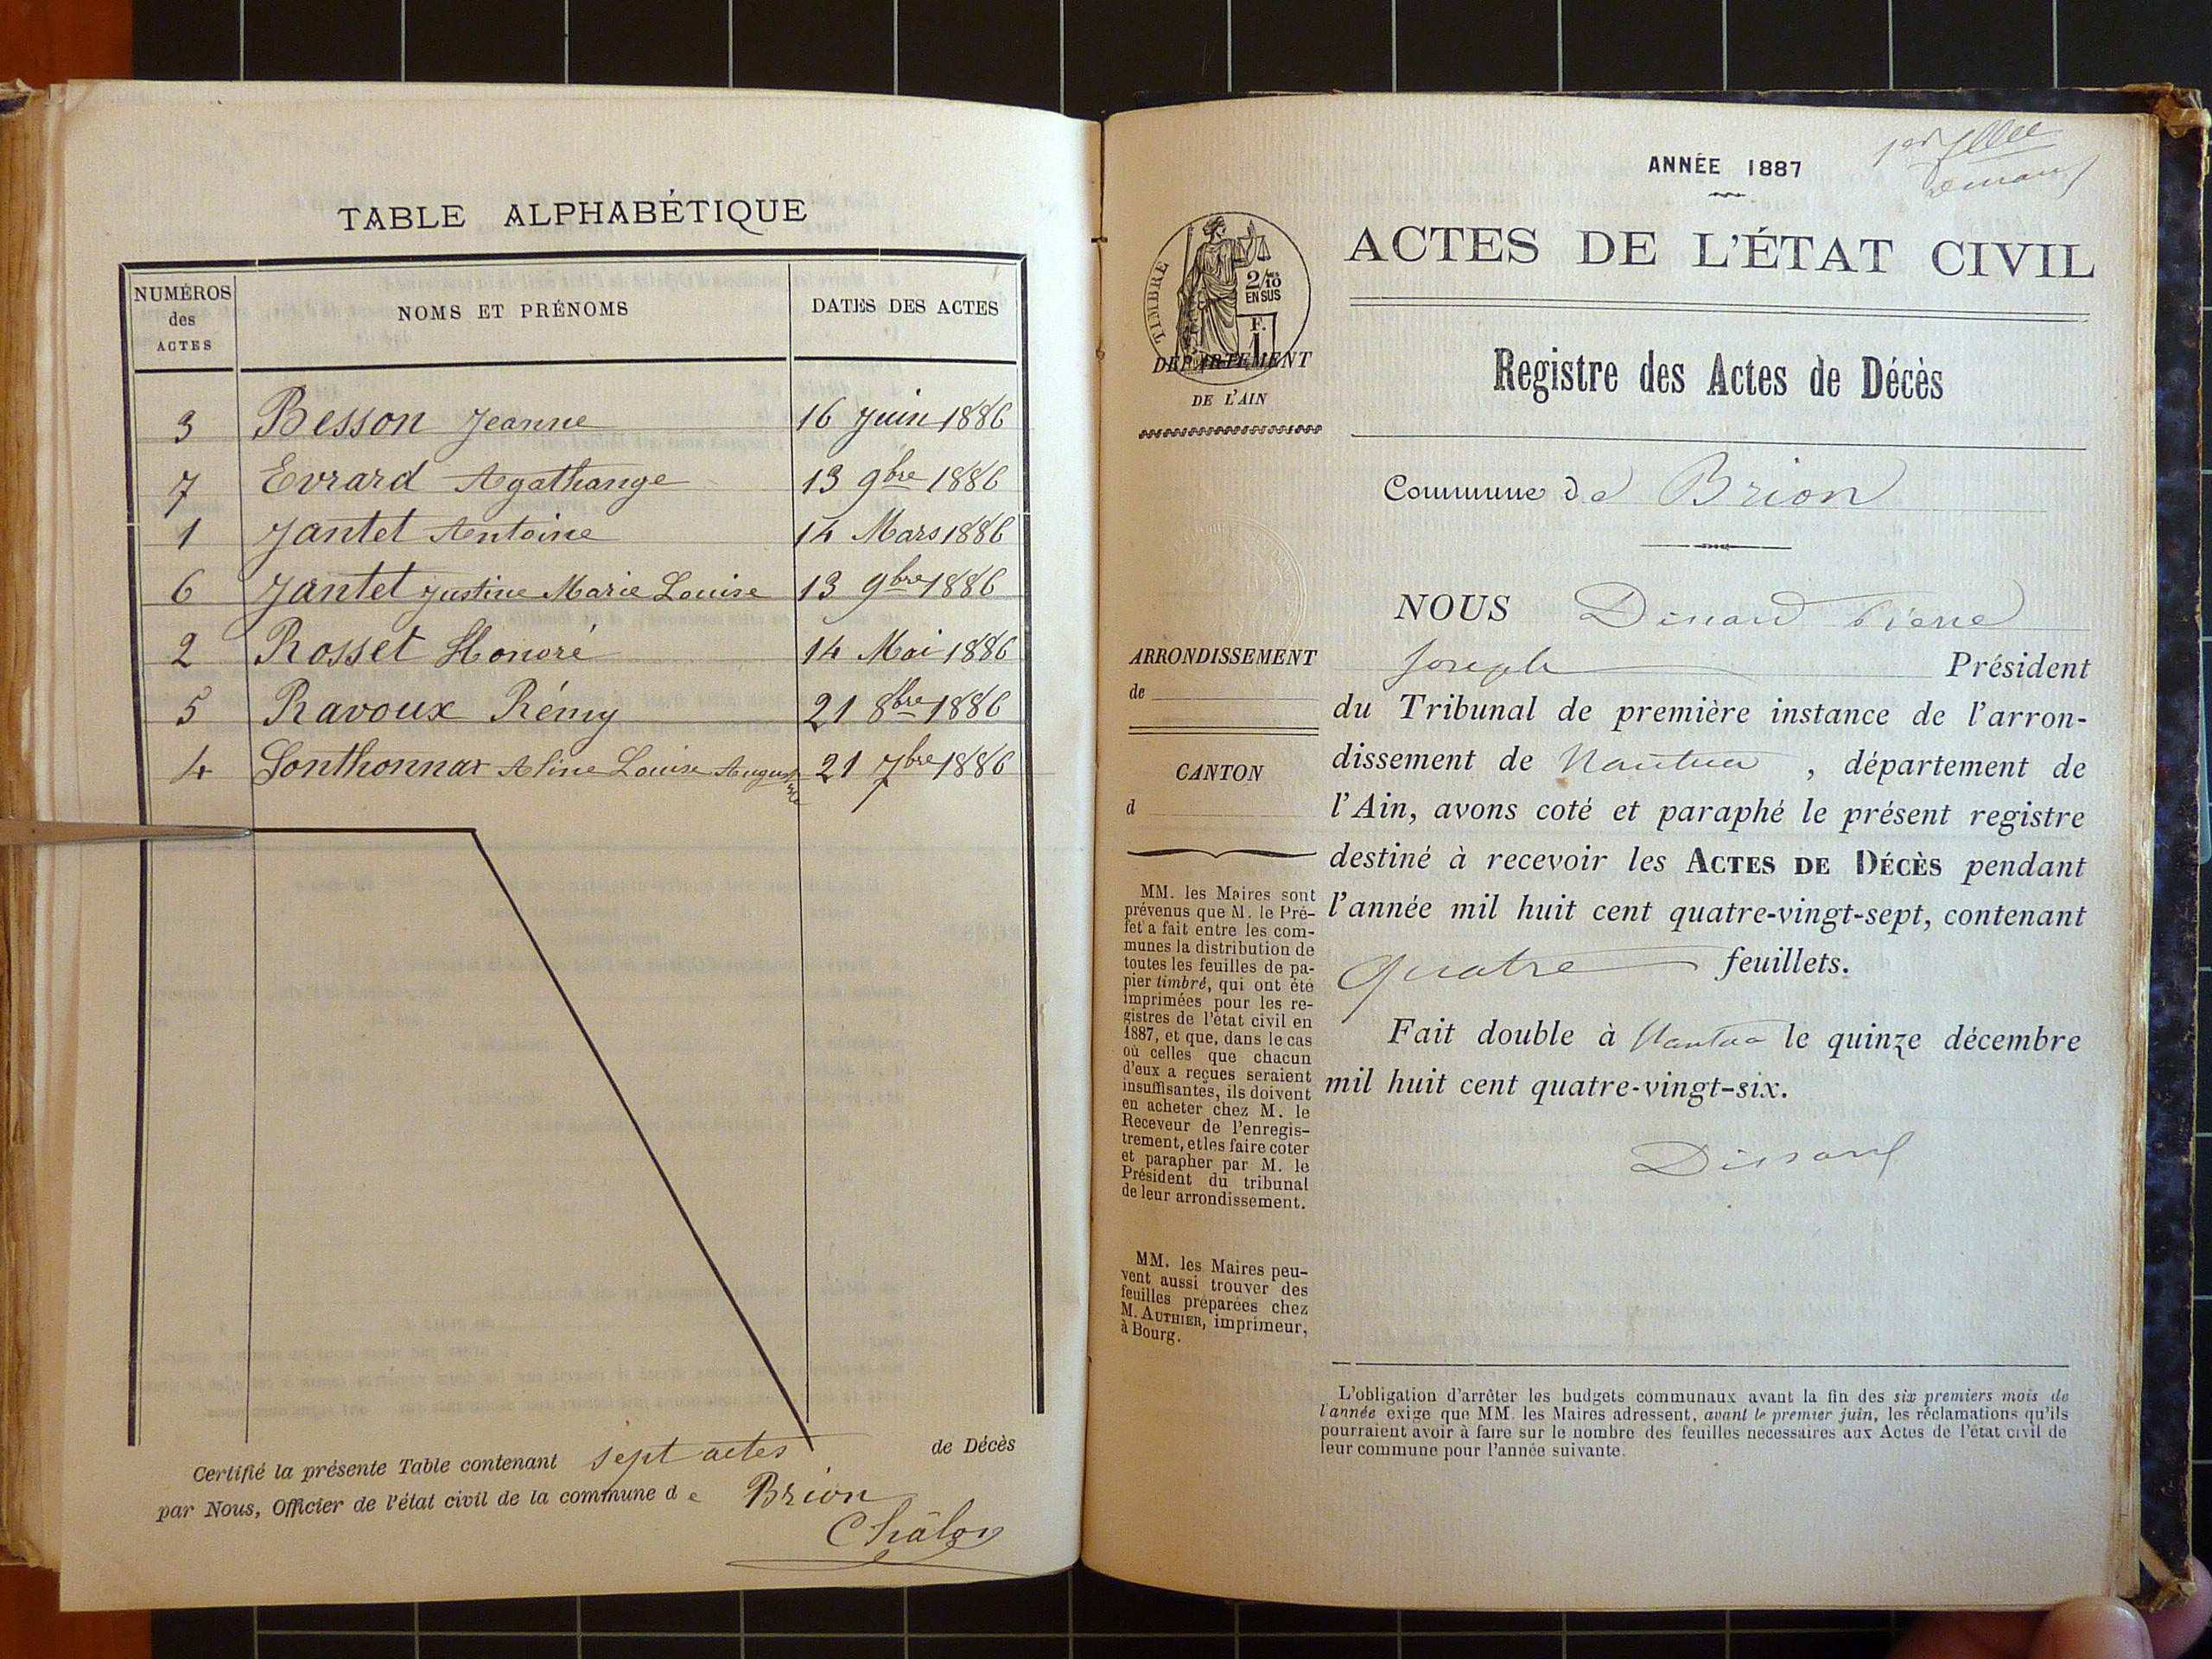 TABLE ALPHABÉTIQUE
NUMÉROS
des
ACTES
NOMS ET PRÉNOMS
DATES DES ACTES
3 Besson Jeanne 16 Juin 1886
7 Evrard Agathange 13 9bre 1886
1 Jantet Antoine 14 Mars 1886
6 Jantet Justine Marie Louise 13 9bre 1886
2 Rosset Honoré 14 Mai 1886
5 Ravoux Rémy 21 8bre 1886
4 Sonthonnax Aline Louise Augustine 21 7bre 1886
Certifié la présente Table contenant sept actes de Décès
par Nous, Officier de l'état civil de la commune de Brion
Châlon
ANNÉE 1887
ACTES DE L'ÉTAT CIVIL
TIMBRE
2/10
EN SUS
F.
1
DÉPARTEMENT
DE L'AIN
Registre des Actes de Décès
Commune de Brion
ARRONDISSEMENT
de
CANTON
d
MM. les Maires sont
prévenus que M. le Pré-
fet a fait entre les com-
munes la distribution de
toutes les feuilles de pa-
pier timbré, qui ont été
imprimées pour les re-
gistres de l'état civil en
1887, et que, dans le cas
où celles que chacun
d'eux a reçues seraient
insuffisantes, ils doivent
en acheter chez M. le
Receveur de l'enregis-
trement, et les faire coter
et parapher par M. le
Président du tribunal
de leur arrondissement.
MM. les Maires peu-
vent aussi trouver des
feuilles préparées chez
M. AUTHIER, imprimeur,
à Bourg.
NOUS Pierre
Joseph Président
du Tribunal de première instance de l'arron-
dissement de Nantua , département de
l'Ain, avons coté et paraphé le présent registre
destiné à recevoir les ACTES DE DÉCÈS pendant
l'année mil huit cent quatre-vingt-sept, contenant
quatre feuillets.
Fait double à Nantua le quinze décembre
mil huit cent quatre-vingt-six.
L'obligation d'arrêter les budgets communaux avant la fin des six premiers mois de
l'année exige que MM. les Maires adressent, avant le premier juin, les réclamations qu'ils
pourraient avoir à faire sur le nombre des feuilles nécessaires aux Actes de l'état civil de
leur commune pour l'année suivante.